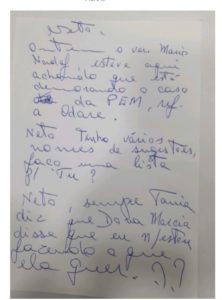 Neto,
ontem o ver. Mario
Nadaf, esteve aqui
achando que está
demorando o caso
da PEM, ref.
a Odare.
Neto Tenho vários
nomes de sugestões,
faço uma lista
p/ Tu?
Neto, sempre Tania
diz que Dona Marcia
disse que eu ñ estou
fazendo o que
ela quer. ??